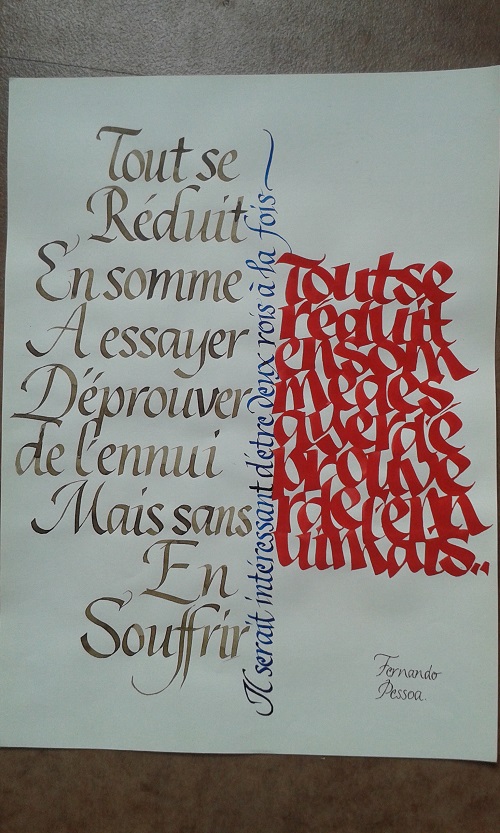 Tout se
Réduit
En somme
A essayer
D'éprouver
de l'ennui
Mais sans
En
Souffrir
Il serait intéressant d'être deux rois à la fois
Toutse
réduit
ensom
medes
ayerdé
prouve
rdelenn
uimais..
Fernando
Pessoa.